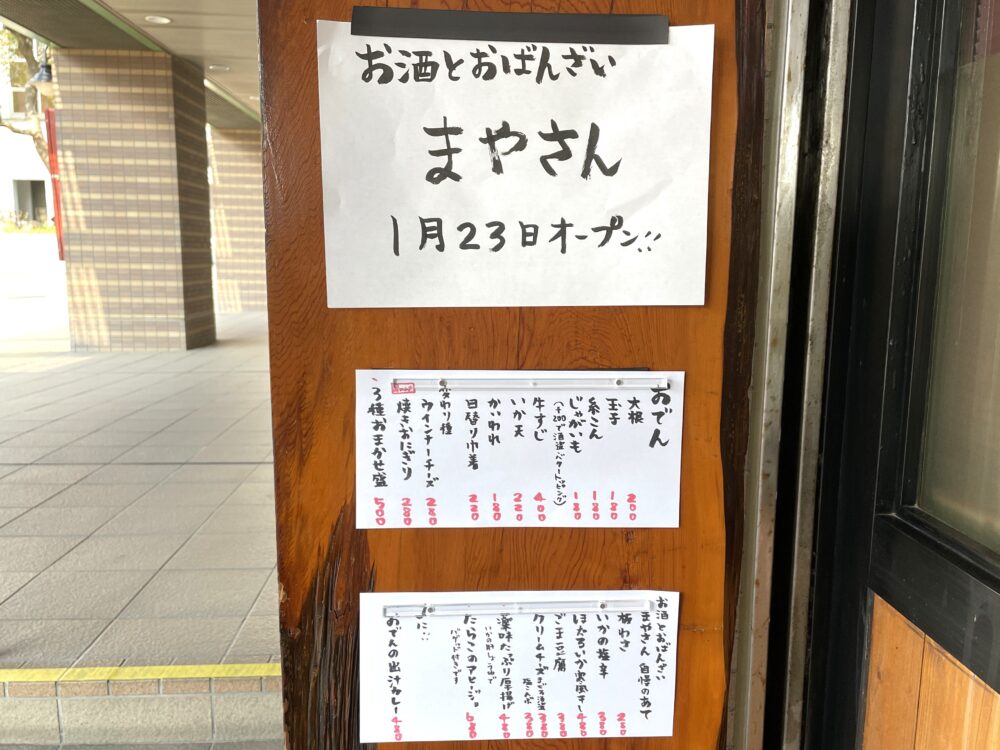 お酒とおばんざい
まやさん
1月23日オープン!!
おでん
大根 200
玉子 180
糸こん 180
じゃがいも 180
(+200で酒盗バタートッピング)
牛すじ 400
いか天 220
かいわれ 180
日替り巾着 220
変わり種
ウインナーチーズ 280
焼きおにぎり 280
3種おまかせ盛 500
お酒とおばんざい
まやさん 自慢のあて
板わさ 280
いかの塩辛 380
ほたるいか寒風干し 480
ごま豆腐 380
クリームチーズ 380
塩こんぶ 380
薬味たっぷり厚揚げ 480
たらこのアヒージョ 680
バゲット付きです
おでんの出汁カレー 480